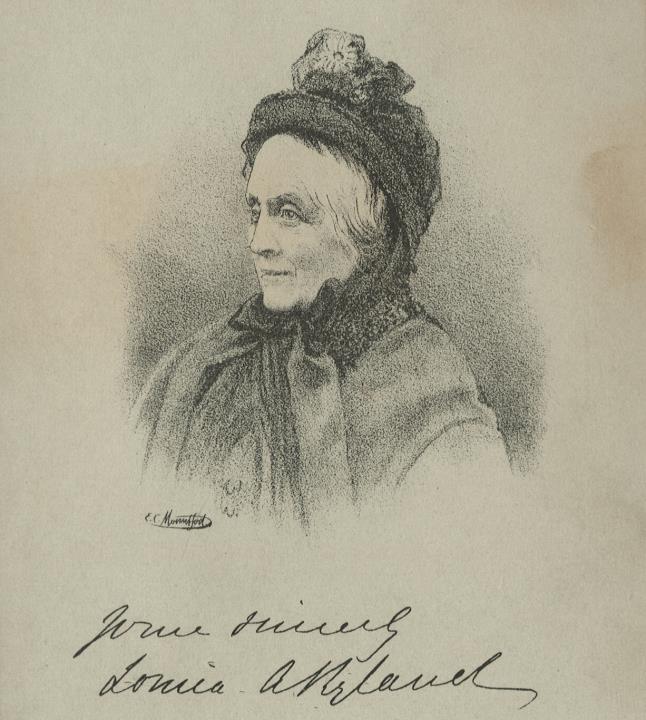 E.C. Mountfort
Yours sincerely
Louisa A Ryland